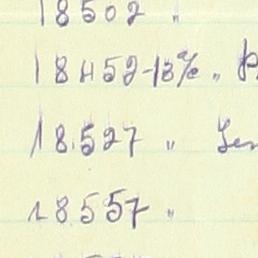 18502 "
18452-13% "
18.527 "
18.557 "